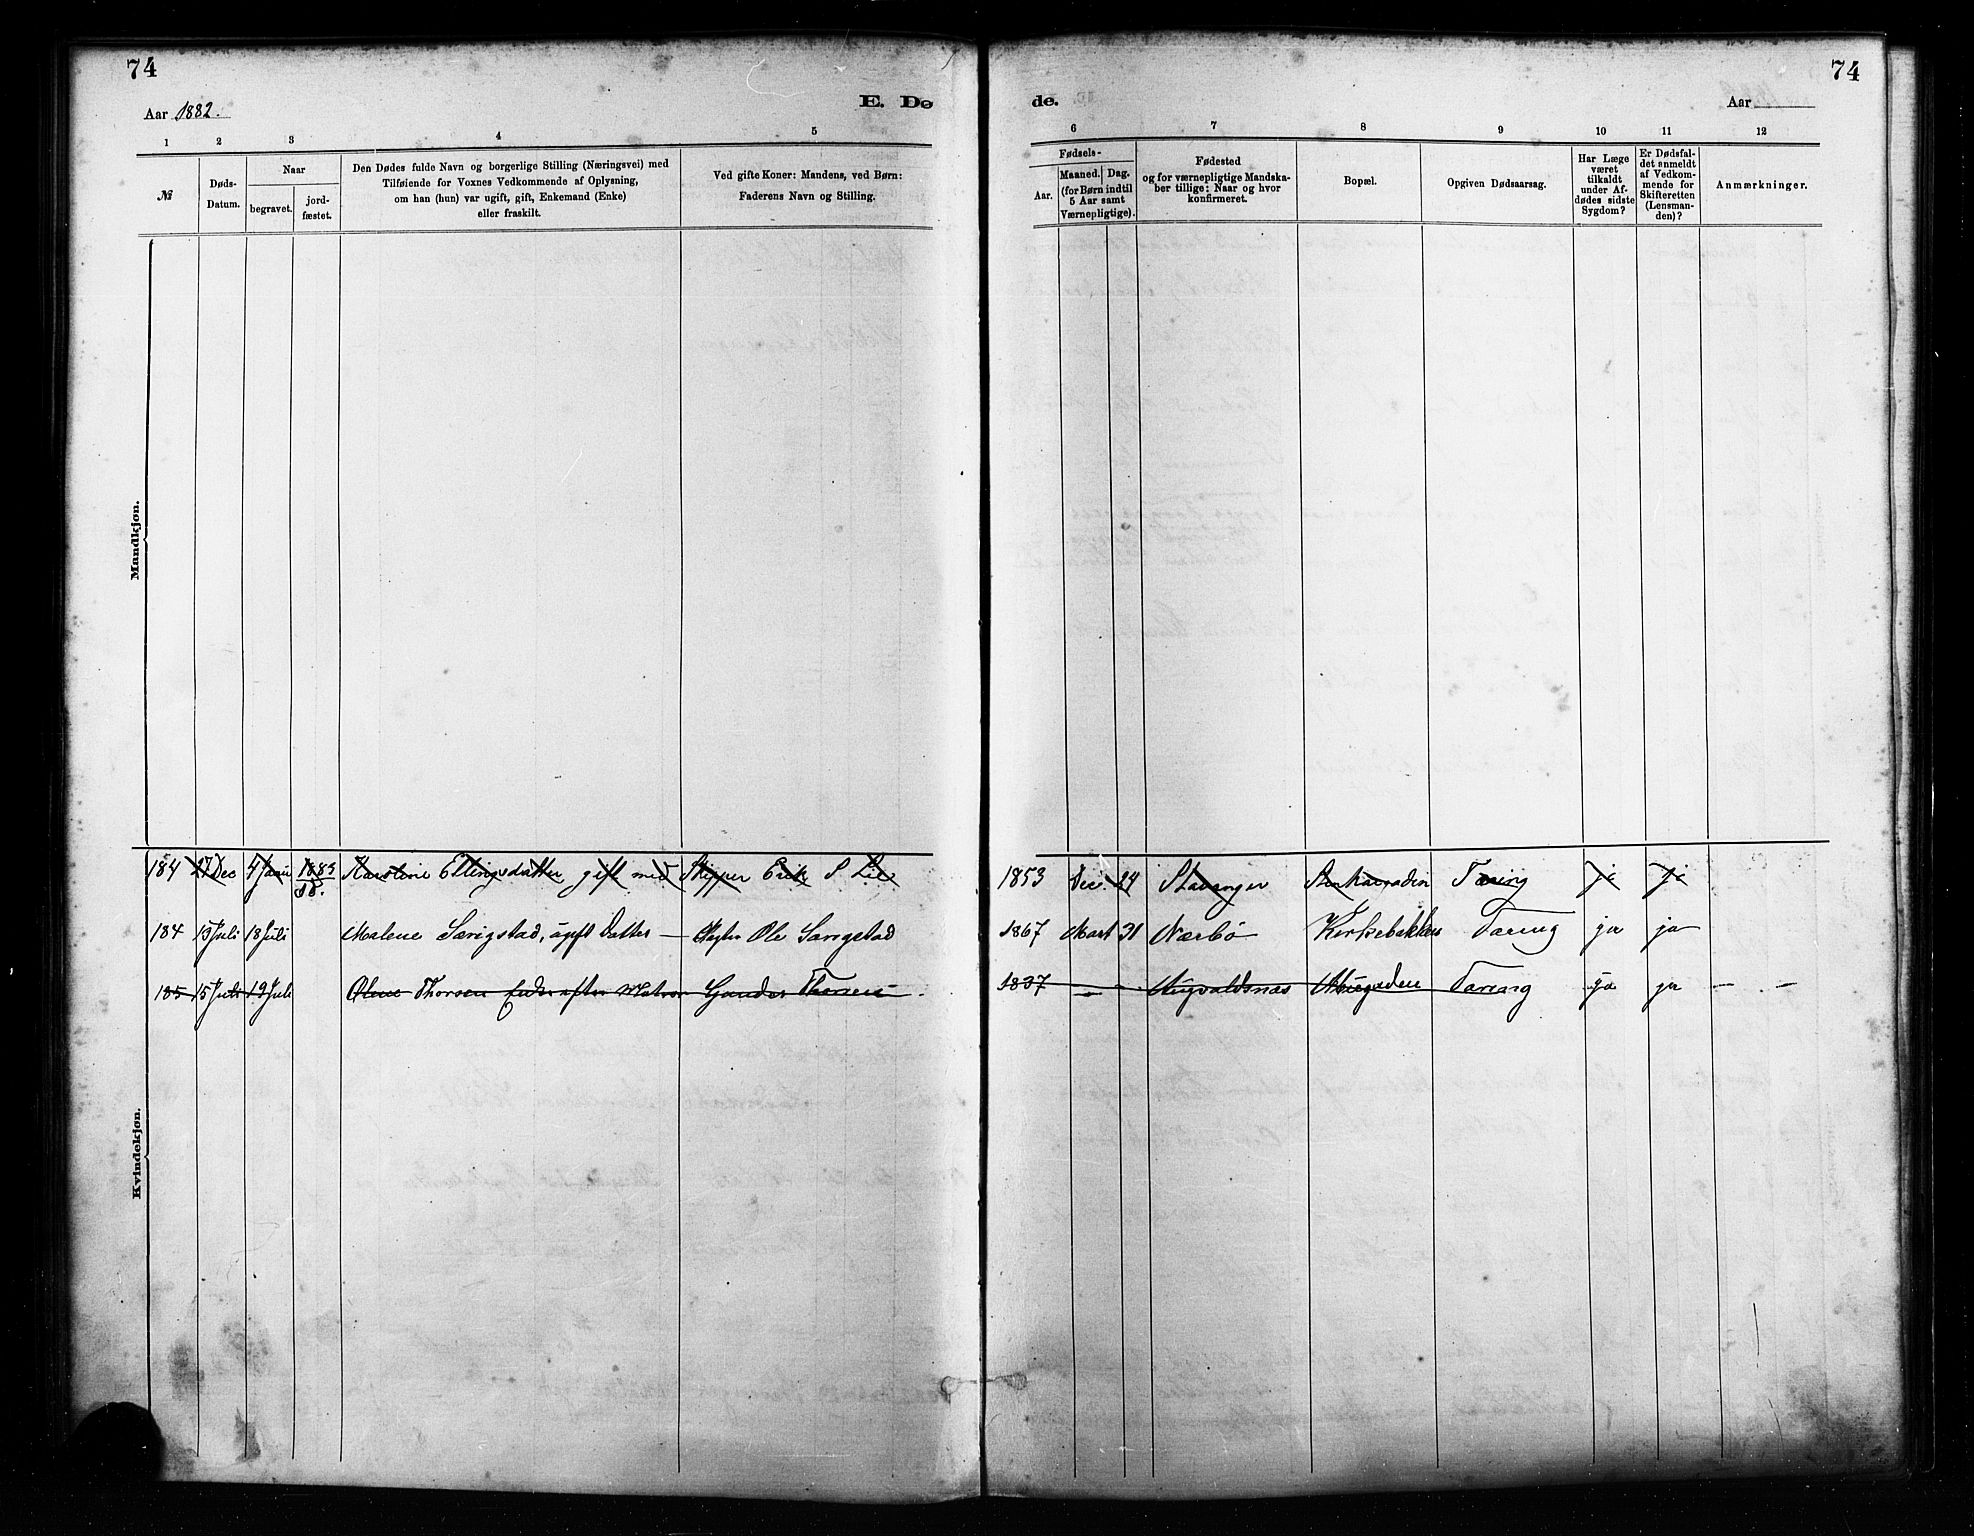 74
74
Aar 1882.
E. Dø
de.
Aar
1 2 3 4 5
6 7 8 9 10 11 12
№
Døds-Datum.
Naar
begravet.
jord-fæstet.
Den Dødes fulde Navn og borgerlige Stilling (Næringsvei) med
Tilføiende for Voxnes Vedkommende af Oplysning,
om han (hun) var ugift, gift, Enkemand (Enke)
eller fraskilt.
Ved gifte Koner: Mandens, ved Børn:
Faderens Navn og Stilling.
Fødsels-
Aar.
Maaned.
Dag.
(for Børn indtil
5 Aar samt
Værnepligtige).
Fødested
og for værnepligtige Mandska-
ber tillige: Naar og hvor
konfirmeret.
Bopæl.
Opgiven Dødsaarsag.
Har Læge
været
tilkaldt
under Af-
dødes sidste
Sygdom?
Er Dødsfal-
det anmeldt
af Vedkom-
mende for
Skifteretten
(Lensman-
den)?
Anmærkninger.
Mandkjøn.
Kvindekjøn.
184 27 Dec 4 Janu 1883 Karoline Ellingsdatter gift med Skipper Erik S Lie 1853 Dec. 24 Stavanger Tæring ja ja
184 15 Juli 18 Juli Malene Særigstad, ugift Datter — Ole Særigstad 1867 Mart 31 Nærbø Kirkebakken Tæring ja ja
185 15 Juli 19 Juli Olene Thorsen Enke efter Matros Gunder Thorsen 1837 — - Augvaldsnæs Tæring ja ja — -